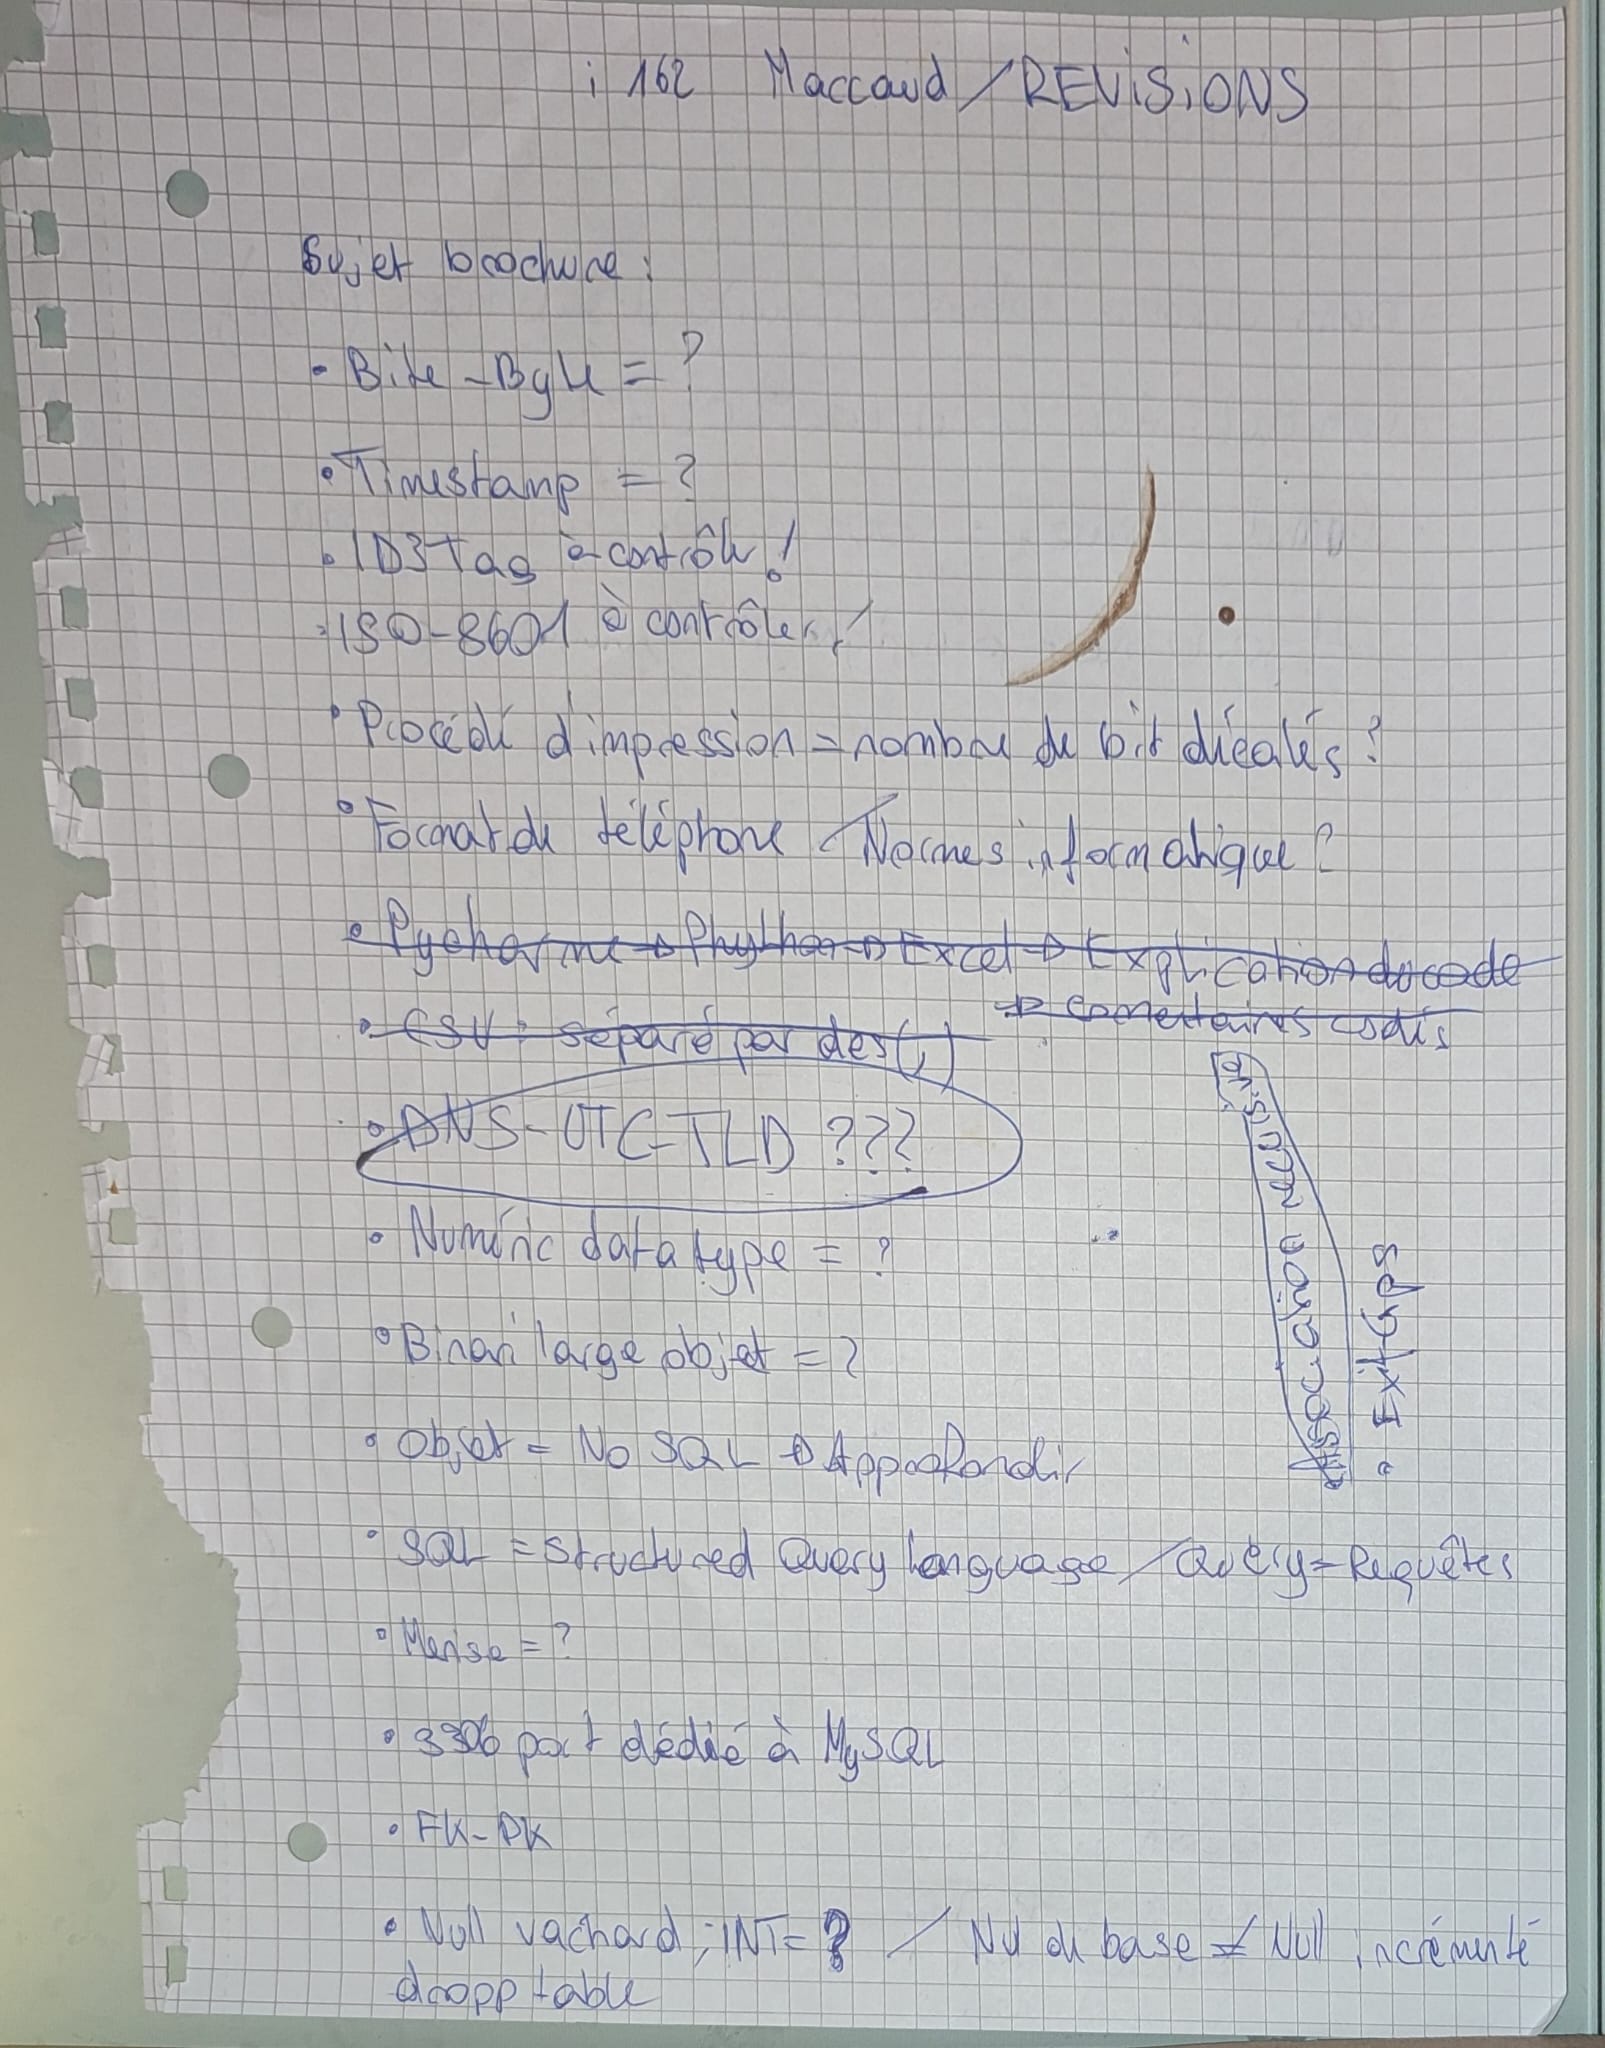 i 162 Maccaud / REVISIONS
Sujet brochure :
• Bite - Byte = ?
• Timestamp = ?
• ID3 Tag à contrôler !
• ISO-8601 à contrôler !
• Procédé d'impression = nombre de bit
• Format de téléphone / Normes informatique ?
• Pycharme → Phython → Excel → Explication du code
→ comentaires codis
• CSV : séparé par des (,)
• DNS - UTC - TLD ???
• Numéric data type = ?
• Binari large objet = ?
• Objet = No SQL → Approfondir
• SQL = Structured Query Language / Query = Requêtes
• Merise = ?
• 3306 port dédié à MySQL
• FK - PK
• Null vachard ; INT = ? / Nul de base ≠ Null incrémenté
dropp table
• Association
• Exif Gps